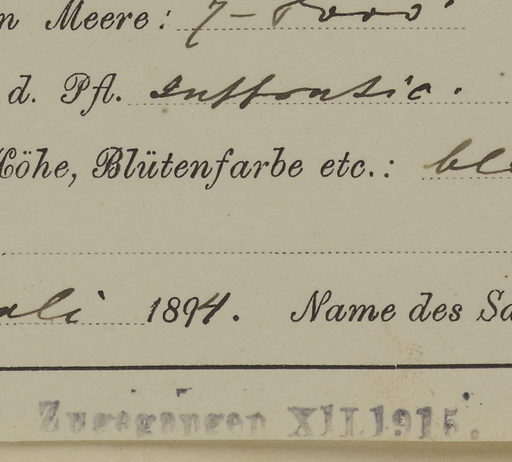 n Meere: 7-8000'
d. Pfl.
Höhe, Blütenfarbe etc.: bl
1894. Name des Sa
Zugegangen XII.1915.